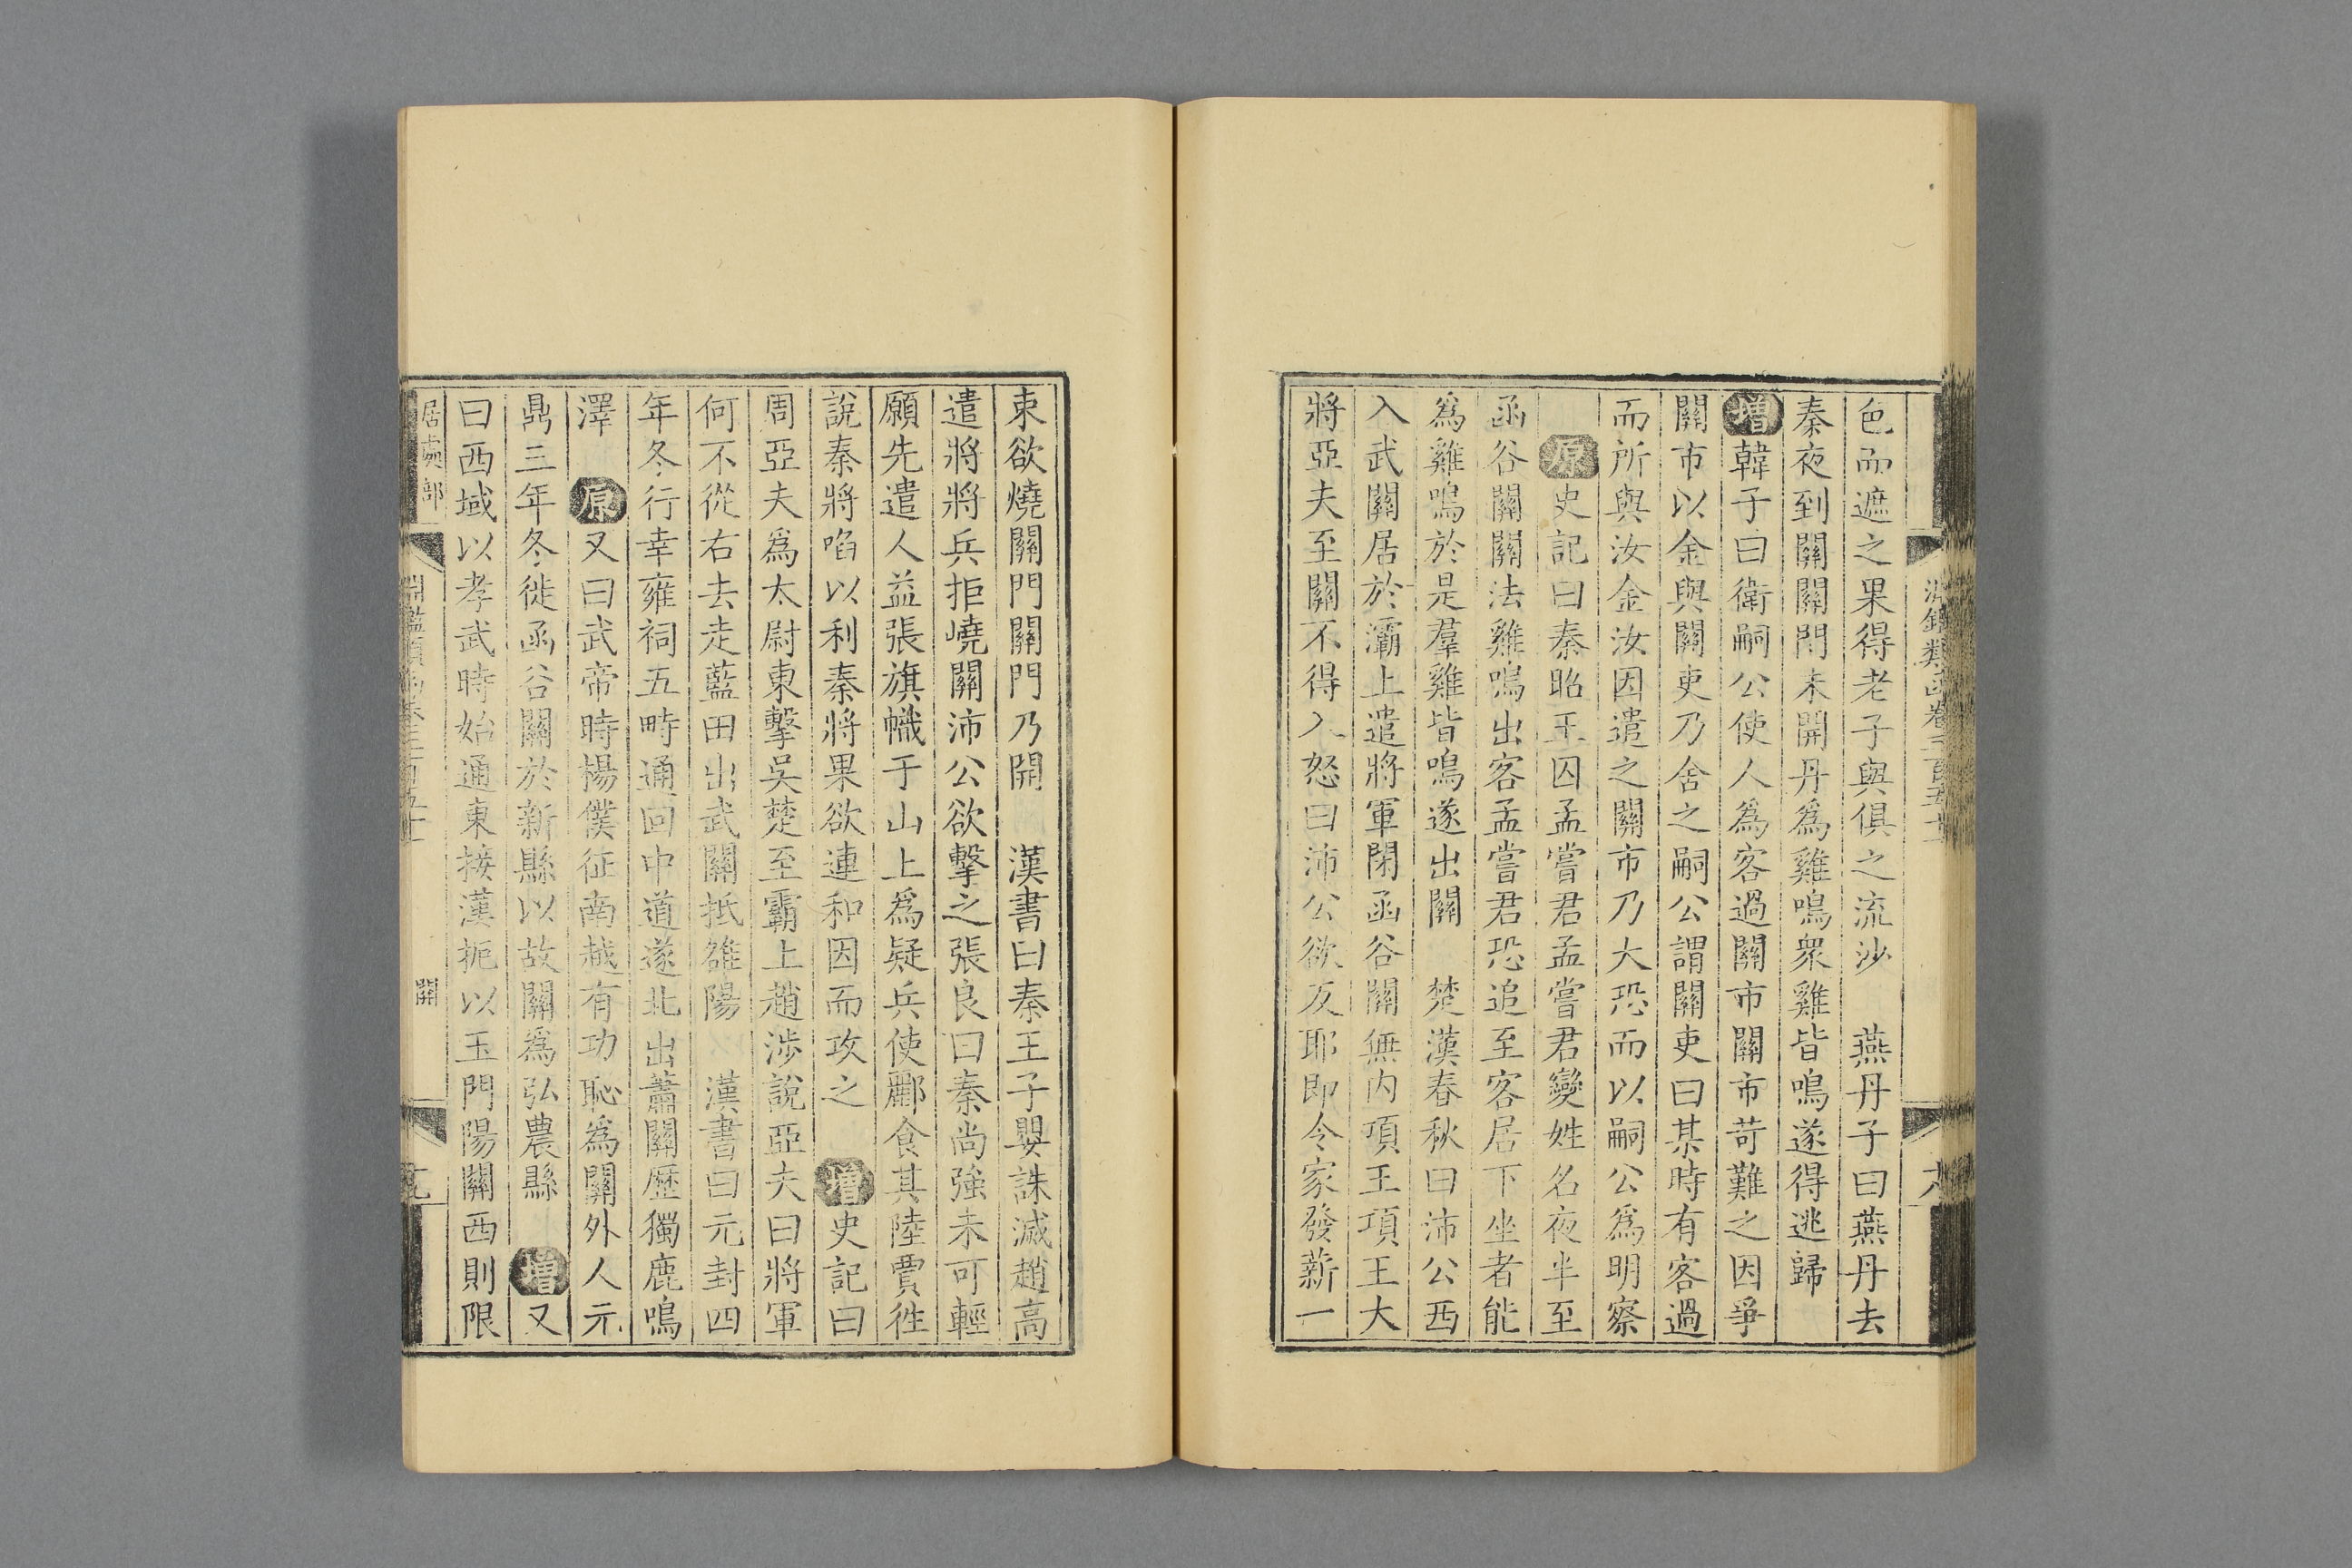 色而遮之果得老子與俱之流沙　燕丹子曰燕丹去
秦夜到關關門未開丹爲雞鳴衆雞皆鳴遂得逃歸
增韓子曰衛嗣公使人爲客過關市關市苛難之因爭
關市以金與關吏乃舍之嗣公謂關吏曰某時有客過
而所與汝金汝因遣之關市乃大恐而以嗣公爲明察
原史記曰秦昭王囚孟嘗君孟嘗君變姓名夜半至
函谷關關法雞鳴出客孟嘗君恐追至客居下坐者能
爲雞鳴於是羣雞皆鳴遂出關　楚漢春秋曰沛公西
入武關居於灞上遣將軍閉函谷關無內項王項王大
將亞夫至關不得入怒曰沛公欲反耶即令家發薪一
束欲燒關門關門乃開　漢書曰秦王子嬰誅滅趙高
遣將將兵拒嶢關沛公欲擊之張良曰秦尚強未可輕
願先遣人益張旗幟于山上爲疑兵使酈食其陸賈徃
說秦將啗以利秦將果欲連和因而攻之　增史記曰
周亞夫爲太尉東擊吳楚至霸上趙涉說亞夫曰將軍
何不從右去走藍田出武關抵雒陽　漢書曰元封四
年冬行幸雍祠五畤通回中道遂北出蕭關歷獨鹿鳴
澤　原又曰武帝時楊僕征南越有功恥爲關外人元
鼎三年冬徙函谷關於新縣以故關爲弘農縣　增又
曰西域以孝武時始通東接漢扼以玉門陽關西則限
居處部　關